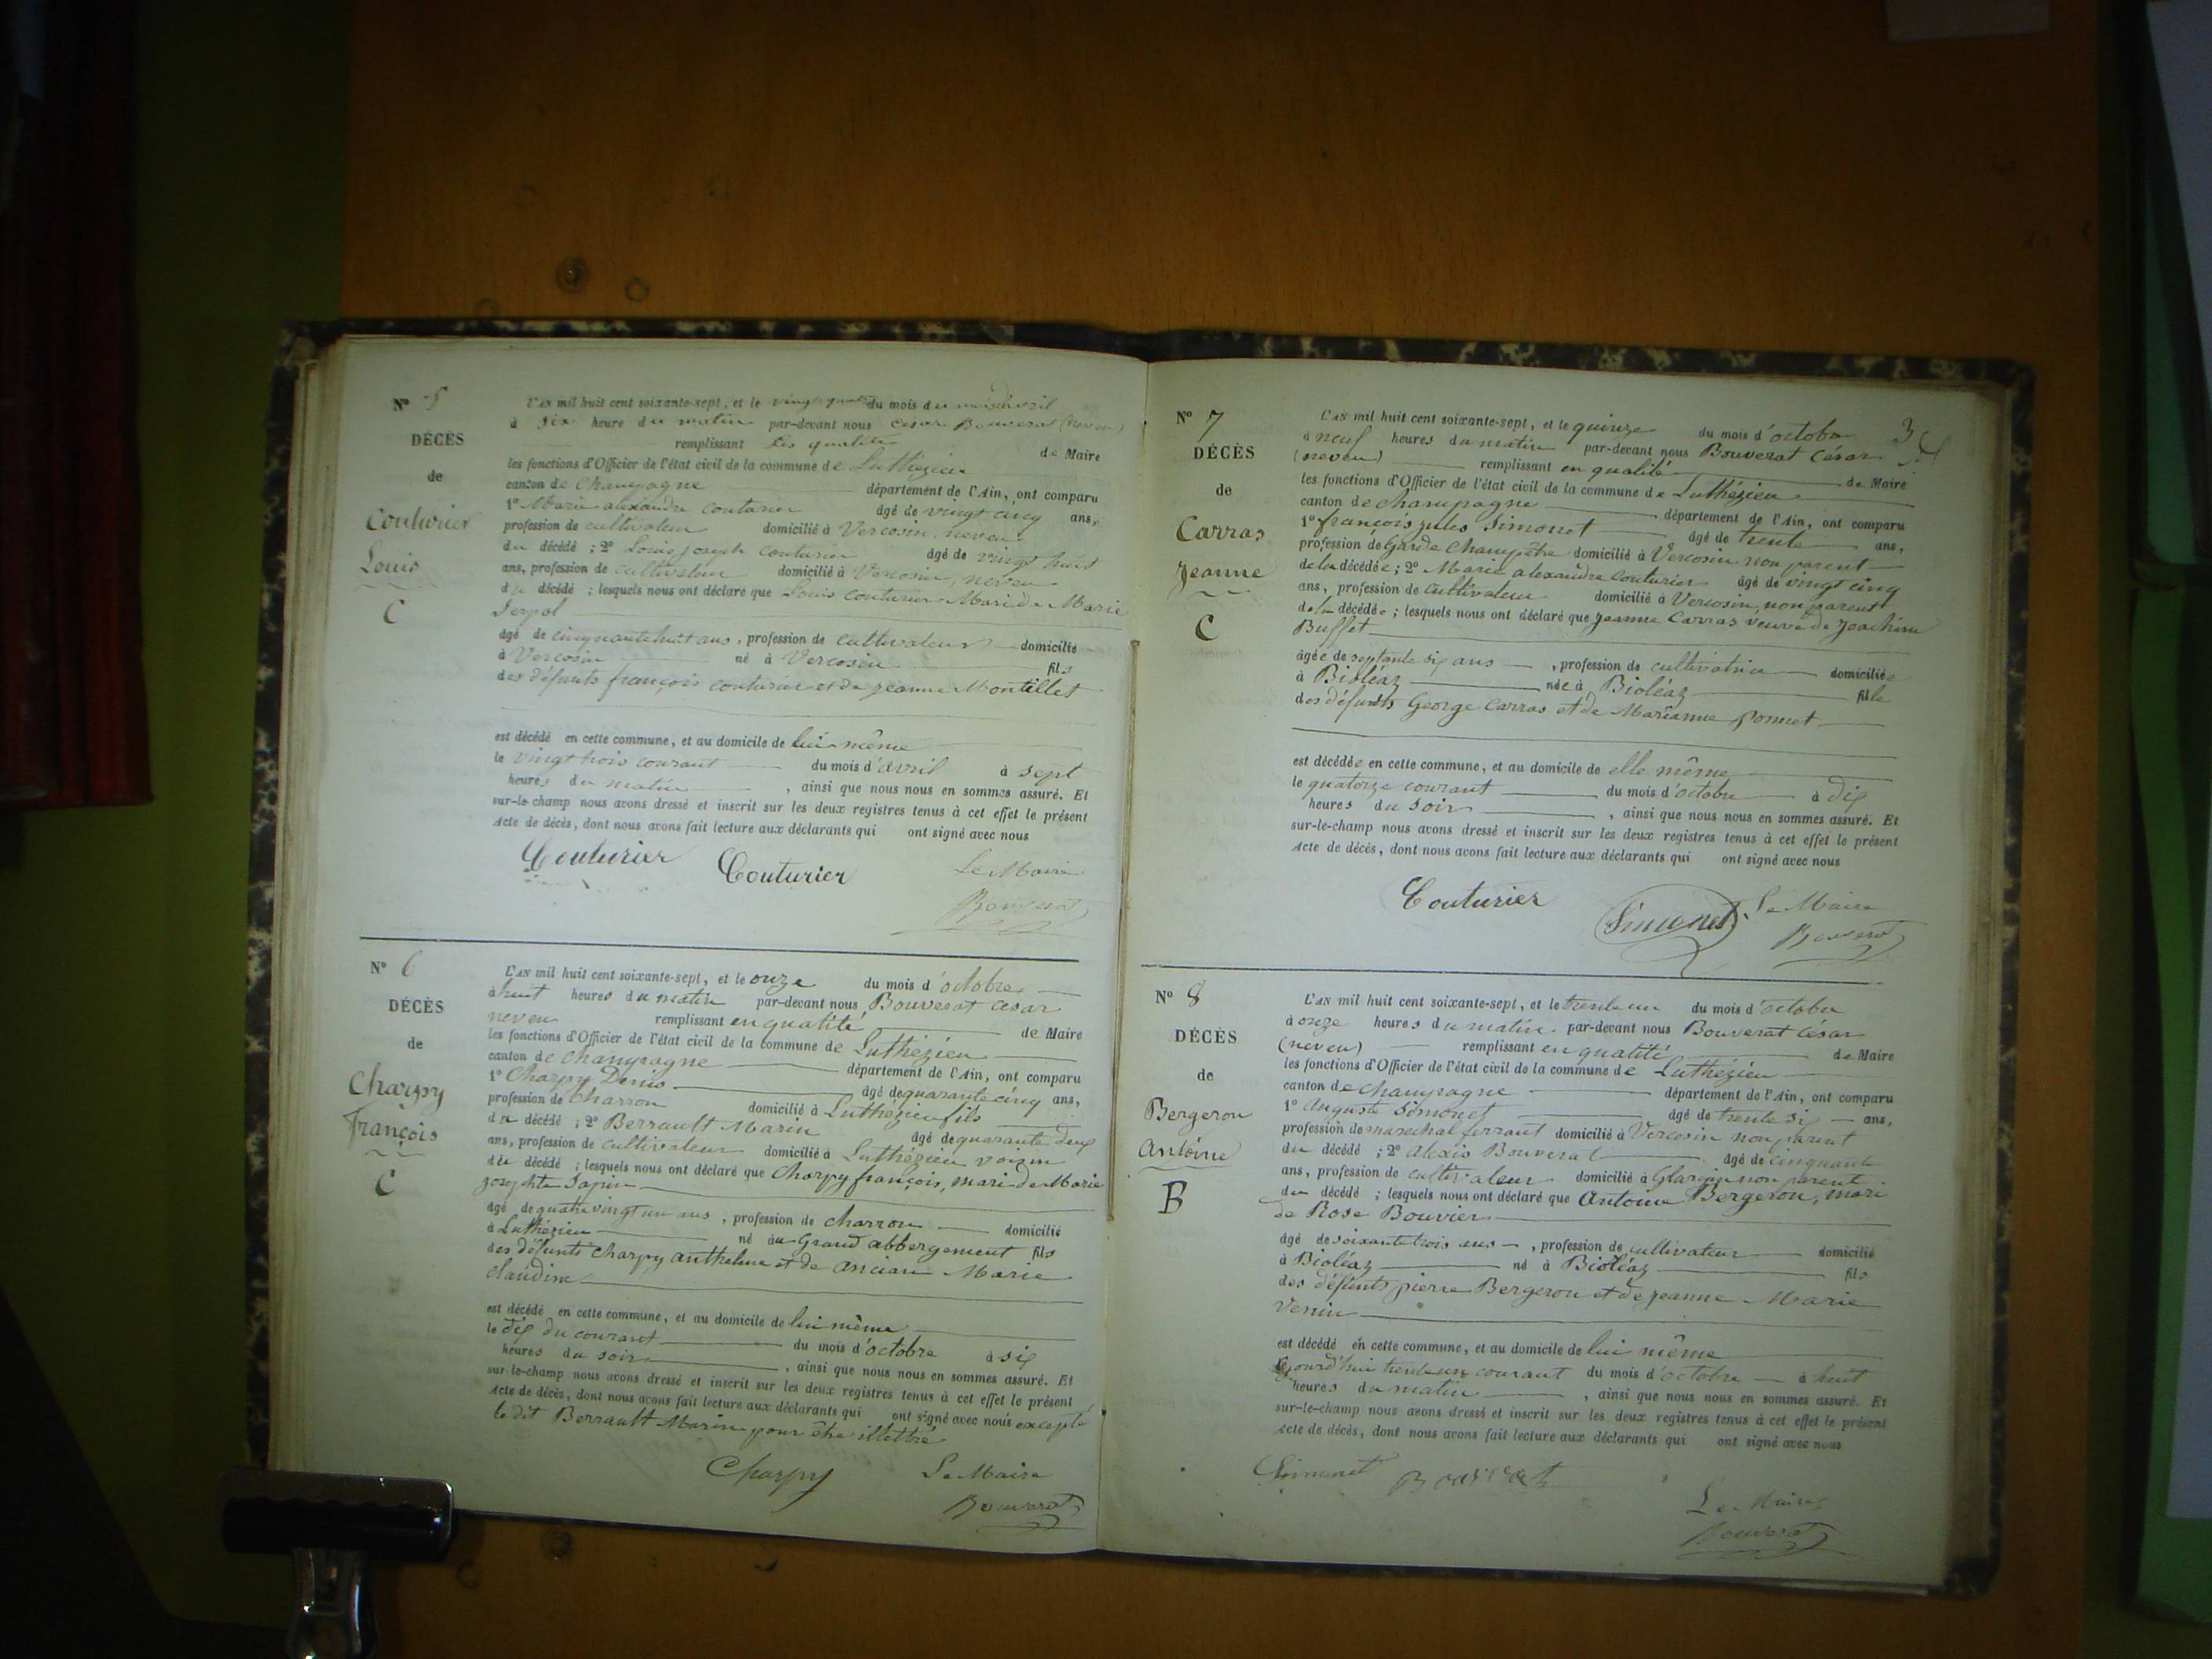 Nº 5
DÉCÈS
de
Couturier
Louis
C
L'AN mil huit cent soixante-sept, et le vingt quatre du mois du mois d'avril
à six heure du matin par-devant nous Cesar Bouverat (neveu)
remplissant les qualités de Maire
les fonctions d'Officier de l'état civil de la commune de Luthézieu
canton de Champagne département de l'Ain, ont comparu
1º Marie alexandre Couturier âgé de vingt cinq ans,
profession de cultivateur domicilié à Vercosin, neveu
du décédé ; 2º Louis joseph Couturier âgé de vingt huit
ans, profession de cultivateur domicilié à Vercosin, neveu
du décédé ; lesquels nous ont déclaré que Louis Couturier Mari de Marie
Serpol
âgé de cinquante huit ans, profession de cultivateur domicilié
à Vercosin né à Vercosin fils
des défunts françois Couturier et de jeanne Montillet
est décédé en cette commune, et au domicile de lui même
le vingt trois courant du mois d'avril à sept
heures du matin, ainsi que nous nous en sommes assuré. Et
sur-le-champ nous avons dressé et inscrit sur les deux registres tenus à cet effet le présent
Acte de décès, dont nous avons fait lecture aux déclarants qui ont signé avec nous
Couturier Couturier Le Maire
Bouverat
Nº 6
DÉCÈS
de
Charpy
François
C
L'AN mil huit cent soixante-sept, et le onze du mois d'octobre
à huit heures du matin par-devant nous Bouverat César
neveu remplissant en qualité de Maire
les fonctions d'Officier de l'état civil de la commune de Luthézieu
canton de Champagne département de l'Ain, ont comparu
1º Charpy Denis âgé de quarante cinq ans,
profession de Charron domicilié à Luthézieu fils
du décédé ; 2º Berrault Marin âgé de quarante deux
ans, profession de cultivateur domicilié à Luthézieu voisin
du décédé ; lesquels nous ont déclaré que Charpy françois, mari de Marie
josephte Sapin
âgé de quatre vingt un ans, profession de charron domicilié
à Luthézieu né au Grand abbergement fils
des défunts Charpy anthelme et de ancian Marie
claudine
est décédé en cette commune, et au domicile de lui même
le dix du courant du mois d'octobre à six
heures du soir, ainsi que nous nous en sommes assuré. Et
sur-le-champ nous avons dressé et inscrit sur les deux registres tenus à cet effet le présent
Acte de décès, dont nous avons fait lecture aux déclarants qui ont signé avec nous excepté
le dit Berrault Marin pour être illettré
Charpy Le Maire
Bouverat
3
Nº 7
DÉCÈS
de
Carras
Jeanne
C
L'AN mil huit cent soixante-sept, et le quinze du mois d'octobre
à neuf heures du matin par-devant nous Bouverat César
(neveu) remplissant en qualité de Maire
les fonctions d'Officier de l'état civil de la commune de Luthézieu
canton de champagne département de l'Ain, ont comparu
1º françois jules Simonet âgé de trente ans,
profession de Garde Champêtre domicilié à Vercosin non parent
de la décédée ; 2º Marie alexandre Couturier âgé de vingt cinq
ans, profession de Cultivateur domicilié à Vercosin, non parent
de la décédée ; lesquels nous ont déclaré que Jeanne Carras veuve de Joachim
Buffet
âgée de septante six ans, profession de cultivatrice domiciliée
à Bioléaz née à Bioléaz fille
des défunts George Carras et de Marianne Ponnet
est décédée en cette commune, et au domicile de elle même
le quatorze courant du mois d'octobre à dix
heures du soir, ainsi que nous nous en sommes assuré. Et
sur-le-champ nous avons dressé et inscrit sur les deux registres tenus à cet effet le présent
Acte de décès, dont nous avons fait lecture aux déclarants qui ont signé avec nous
Couturier Simonet Le Maire
Bouverat
Nº 8
DÉCÈS
de
Bergeron
Antoine
B
L'AN mil huit cent soixante-sept, et le trente un du mois d'octobre
à onze heures du matin par-devant nous Bouverat César
(neveu) remplissant en qualité de Maire
les fonctions d'Officier de l'état civil de la commune de Luthézieu
canton de Champagne département de l'Ain, ont comparu
1º Auguste Simonet âgé de trente six ans,
profession de marechal ferrant domicilié à Vercosin non parent
du décédé ; 2º Alexis Bouverat âgé de cinquante
ans, profession de cultivateur domicilié à non parent
du décédé ; lesquels nous ont déclaré que Antoine Bergeron, mari
de Rose Bouvier
âgé de soixante trois ans, profession de cultivateur domicilié
à Bioléaz né à Bioléaz fils
des défunts pierre Bergeron et de jeanne Marie
Venin
est décédé en cette commune, et au domicile de lui même
jourd'hui trente un courant du mois d'octobre à huit
heures du matin, ainsi que nous nous en sommes assuré. Et
sur-le-champ nous avons dressé et inscrit sur les deux registres tenus à cet effet le présent
Acte de décès, dont nous avons fait lecture aux déclarants qui ont signé avec nous
Simonet Bouverat
Le Maire
Bouverat